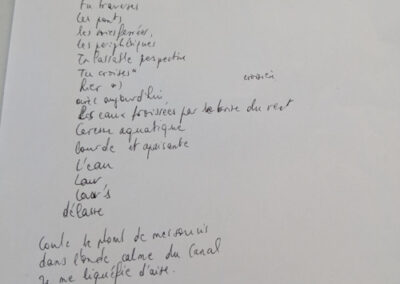 Tu traverses
les ponts
les voies ferrées,
les périphériques
Inlassable perspective
Tu croises*
hier *)
croisière
avec aujourd'hui
Les eaux froissées par la brise du vent
Caresse aquatique
lourde et apaisante
L'eau
délasse
Coule le plomb de mes soucis
dans l'onde calme du Canal
Je me liquéfie d'aise.